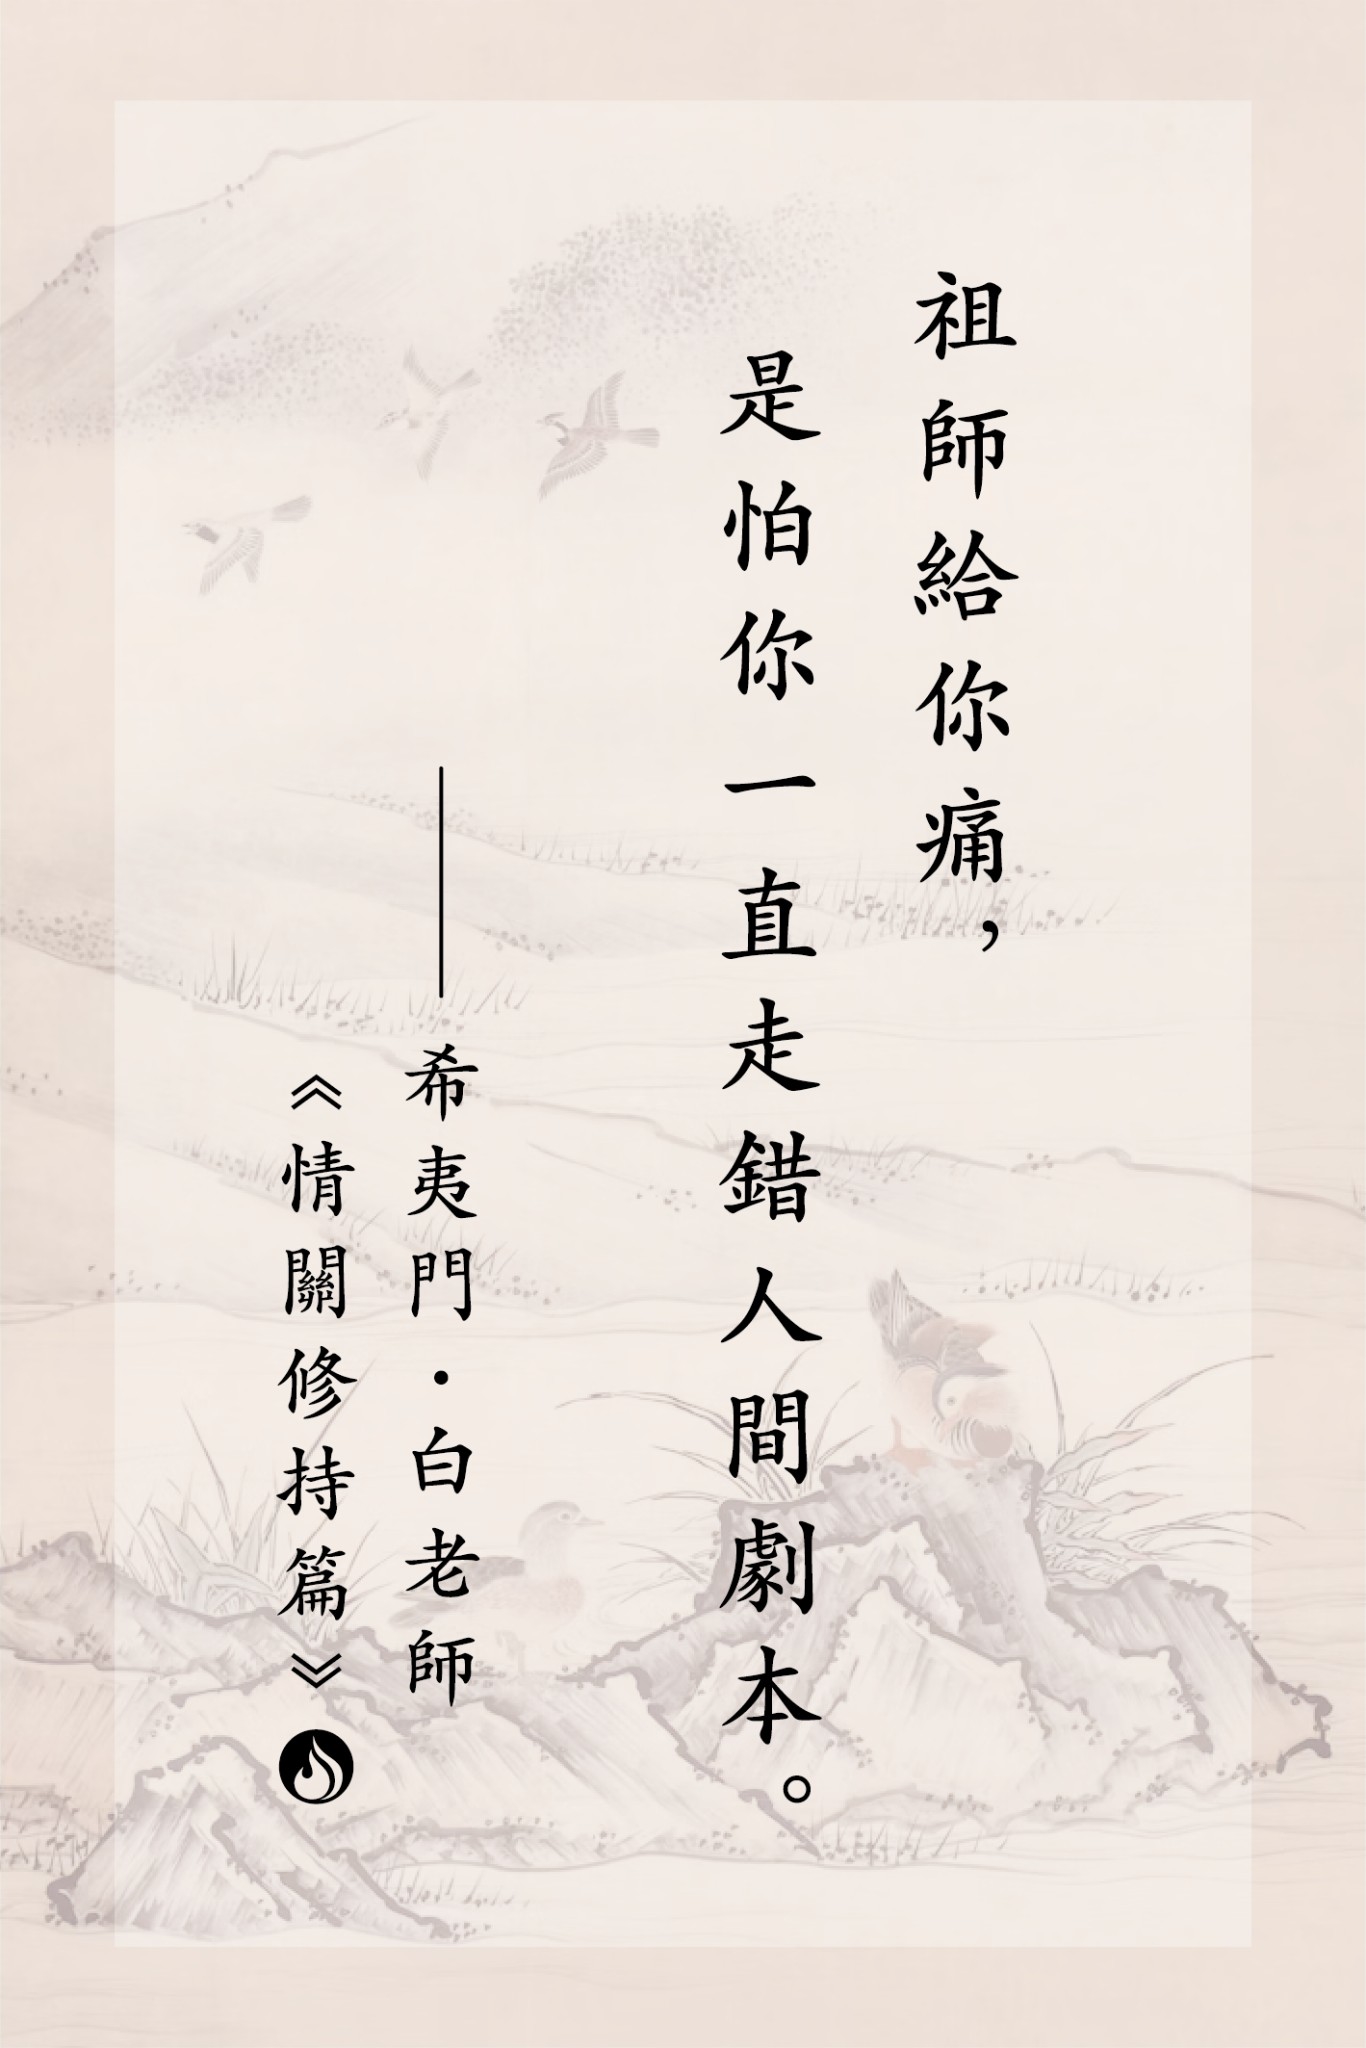 祖師給你痛，
是怕你一直走錯人間劇本。
——希夷門・白老師
《情關修持篇》